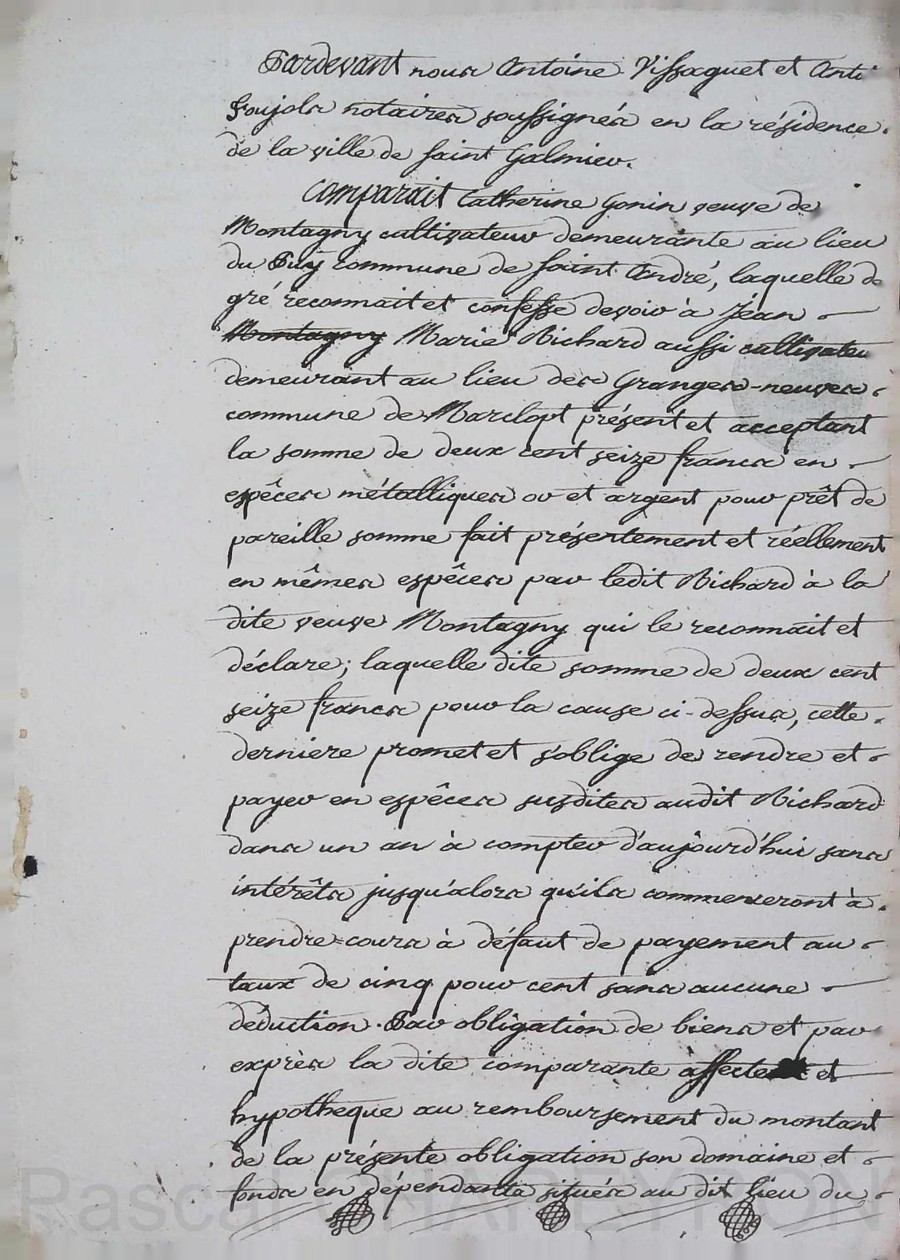 Pardevant nous Antoine Vissaguet et Anti
Soujols notaires soussignés en la résidence
de la ville de Saint Galmier.
Comparait Catherine Gonin veuve de
Montagny cultivateur demeurante au lieu
du Puy commune de Saint André, laquelle de
gré reconnait et confesse devoir à Jean
Montagny Marie Richard aussi cultivateu
demeurant au lieu des Granges-neuves
commune de Marclopt présent et acceptant
la somme de deux cent seize francs en
espêces métalliques or et argent pour prêt de
pareille somme fait présentement et réellement
en mêmes espêces par ledit Richard à la
dite veuve Montagny qui le reconnait et
déclare; laquelle dite somme de deux cent
seize francs pour la cause ci-dessus, cette
derniere promet et s'oblige de rendre et
payer en espêces susdites audit Richard
dans un an à compter d'aujourd'hui sans
intérêts jusqu'alors qu'ils commenceront à
prendre cours à défaut de payement au
taux de cinq pour cent sans aucune
déduction. Par obligation de biens et par
exprès la dite comparante affecte et
hypotheque au remboursement du montant
de la présente obligation son domaine et
fonds en dépendants situés au dit lieu du
Pascal CHAPEYRON